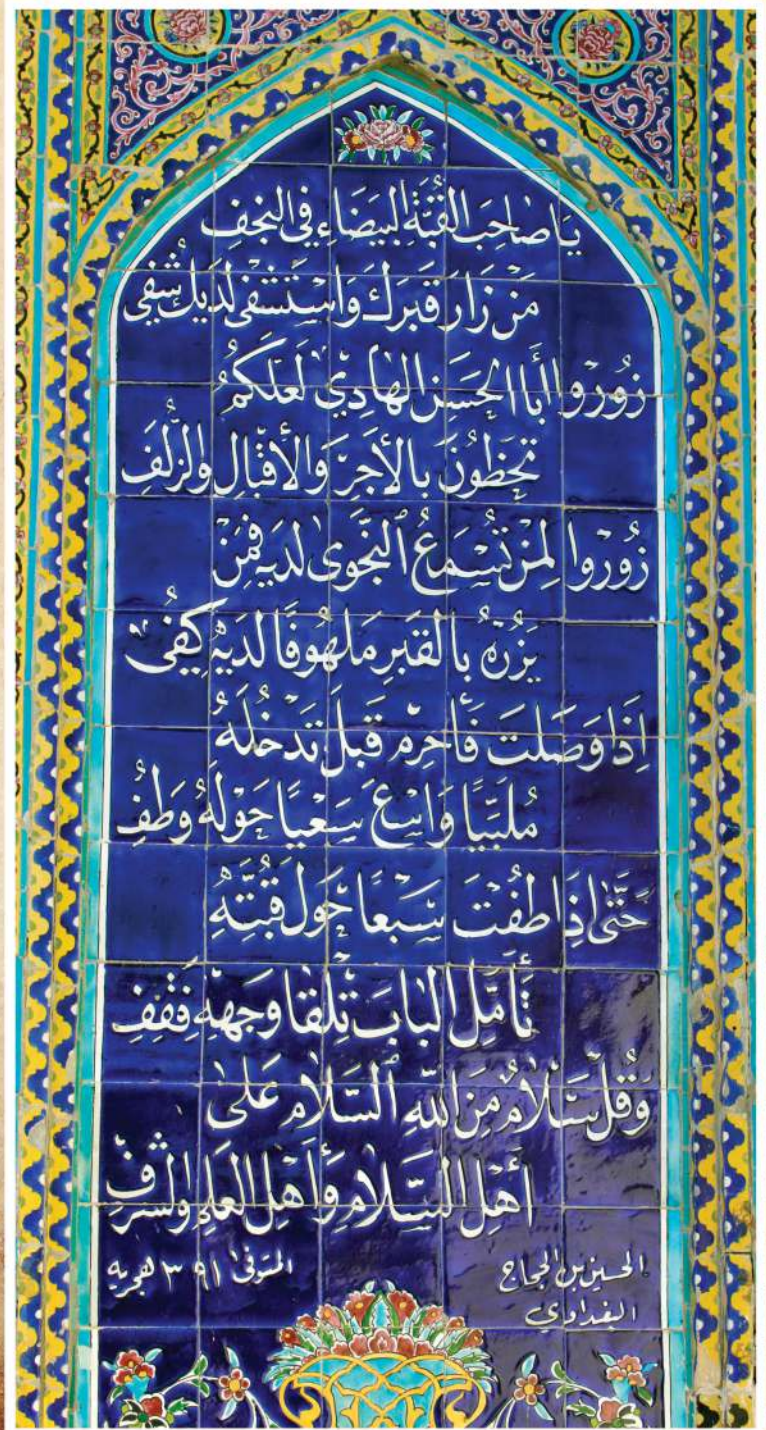 يَا صَاحِبَ القُبَّةِ البَيضَاءِ في النجفِ
مَن زَارَ قَبرَكَ وَاسْتَشفى لَدَيكَ شُفِي
زُورُوا أَبَا الحَسَنِ الهَادِيْ لَعَلَّكُمُ
تَحظَونَ بالأَجرِ وَالأقبَالِ والزُلَفِ
زُوروا لِمَنْ تُسْمَعُ النَّجْوى لدَيهِ فمَنْ
يَزُرهُ بالقَبرِ مَلهُوفًا لدَيهْ كُفِي
اِذَا وَصَلتَ فَأحرِمْ قَبلَ تَدخُلَهُ
مُلَبِّيًا وَاسْعَ سَعْيًا حَولَهُ وَطُفِ
حَتَّى اِذَا طُفْتَ سَبْعًا حَولَ قُبَّتِهِ
تَأَمَّلِ البَابَ تَلْقَا وَجهَهُ فَقِفِ
وَقُل سَلَامٌ مِنَ اللهِ السَّلَامِ عَلى
أَهْلِ السَّلَامِ وَأَهْلِ العِلمِ والشَرَفِ
الحسين بن الحجاج المتوفى ٣٩١ هجريه
البغدادي